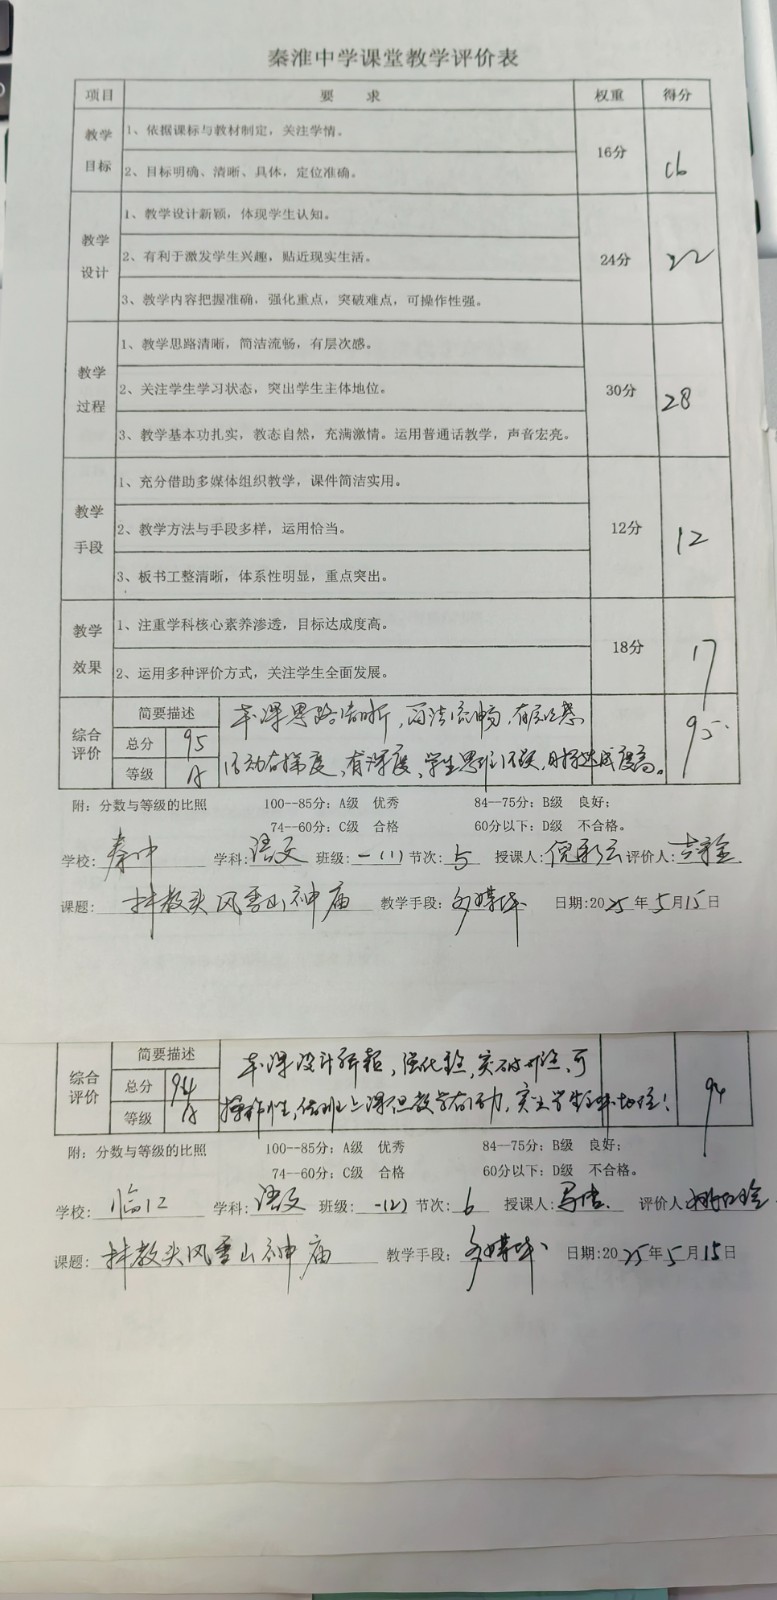 秦淮中学课堂教学评价表
项目 要 求 权重 得分
教学目标 1、依据课标与教材制定，关注学情。 16分 16
2、目标明确、清晰、具体，定位准确。
教学设计 1、教学设计新颖，体现学生认知。 24分 22
2、有利于激发学生兴趣，贴近现实生活。
3、教学内容把握准确，强化重点，突破难点，可操作性强。
教学过程 1、教学思路清晰，简洁流畅，有层次感。 30分 28
2、关注学生学习状态，突出学生主体地位。
3、教学基本功扎实，教态自然，充满激情。运用普通话教学，声音宏亮。
教学手段 1、充分借助多媒体组织教学，课件简洁实用。 12分 12
2、教学方法与手段多样，运用恰当。
3、板书工整清晰，体系性明显，重点突出。
教学效果 1、注重学科核心素养渗透，目标达成度高。 18分 17
2、运用多种评价方式，关注学生全面发展。
综合评价 简要描述 本课思路清晰，简洁流畅，有层次感 95
总分 95 活动有梯度，有深度，学生思维活跃，目标达成度高。
等级 A
附：分数与等级的比照 100--85分：A级 优秀 84--75分：B级 良好；
74--60分：C级 合格 60分以下：D级 不合格。
学校：秦中 学科：语文 班级：一(1) 节次：5 授课人： 评价人：
课题：林教头风雪山神庙 教学手段：多媒体 日期：2025年5月15日
综合评价 简要描述 本课设计新颖，强化重点，突破难点，可 94
总分 94 操作性，借班上课但教学有活力，
等级 A
附：分数与等级的比照 100--85分：A级 优秀 84--75分：B级 良好；
74--60分：C级 合格 60分以下：D级 不合格。
学校：临江 学科：语文 班级：一(2) 节次：6 授课人： 评价人：
课题：林教头风雪山神庙 教学手段：多媒体 日期：2025年5月15日